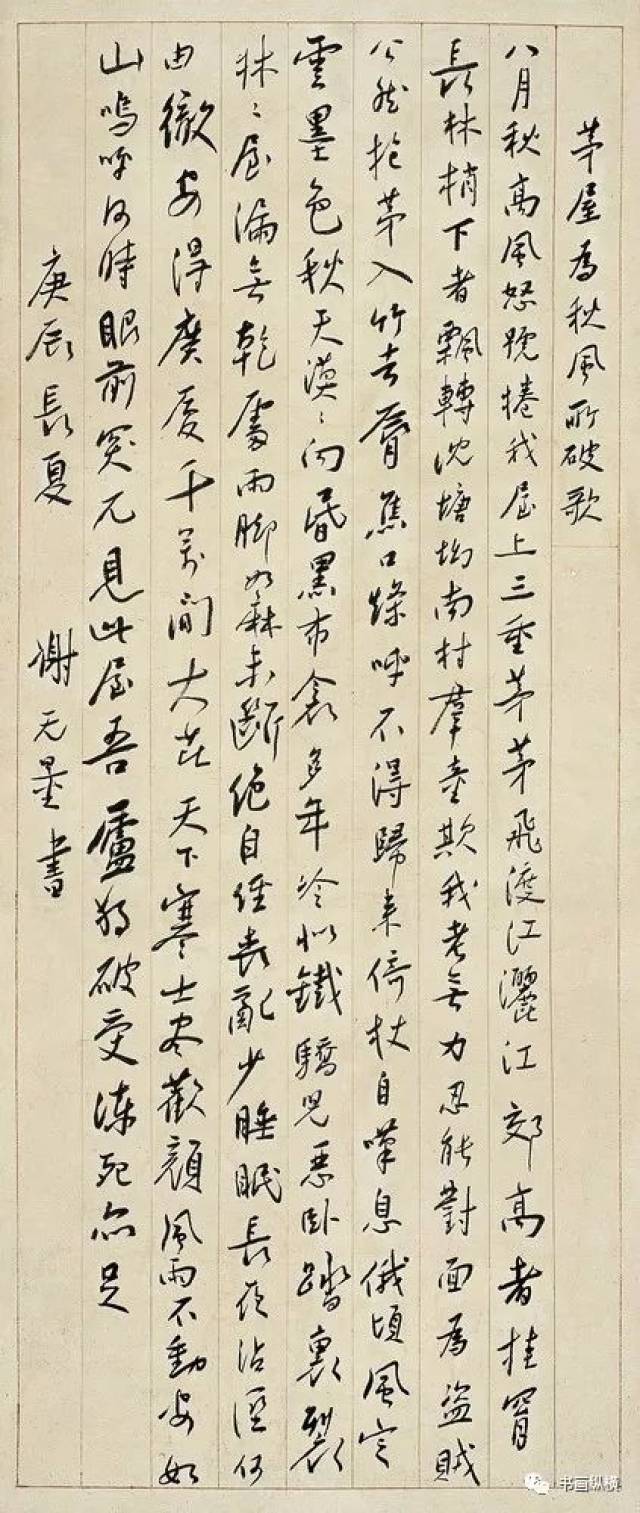 茅屋爲秋風所破歌
八月秋高風怒號捲我屋上三重茅茅飛渡江灑江郊高者挂罥
長林梢下者飄轉沈塘坳南村羣童欺我老無力忍能對面爲盜賊
公然抱茅入竹去脣焦口燥呼不得歸來倚杖自嘆息俄頃風定
雲墨色秋天漠〻向昏黑布衾多年冷似鐵驕兒惡臥踏裏裂
牀〻屋漏無乾處雨脚如麻未斷絶自經喪亂少睡眠長夜沾溼何
由徹安得廣廈千萬間大庇天下寒士盡歡顔風雨不動安如
山嗚呼何時眼前突兀見此屋吾廬獨破受凍死亦足
庚辰長夏 謝无量書
书画纵横